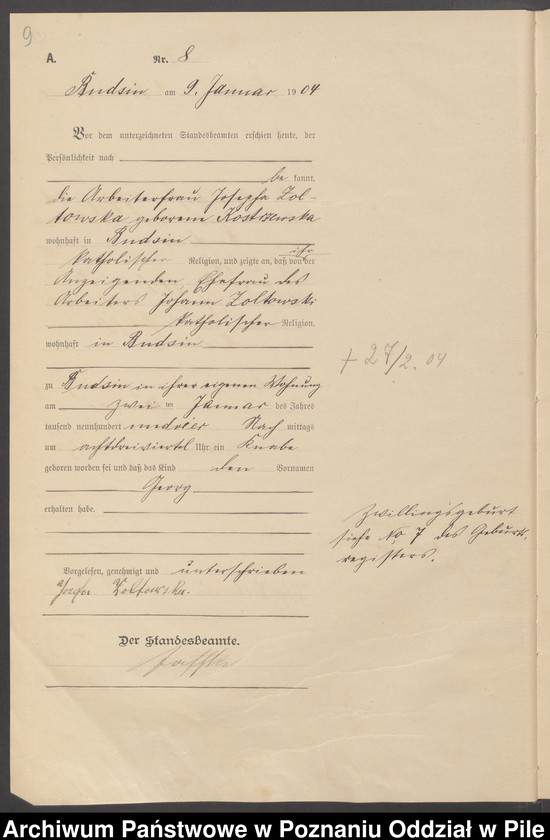 9
A.
Nr. 8
Budsin am 9. Januar 1904
Vor dem unterzeichneten Standesbeamten erschien heute, der
Persönlichkeit nach
be kannt,
die Arbeiterfrau Josepha Zol-
towska geborene Kostrzewska
wohnhaft in Budsin
katholischer Religion, und zeigte an, daß von der
ihr
Anzeigenden, Ehefrau des
Arbeiters Johann Zoltowski
katholischer Religion,
wohnhaft in Budsin
zu Budsin in ihrer eigenen Wohnung
am zwei ten Januar des Jahres
tausend neunhundert und vier Nach mittags
um achtdreiviertel Uhr ein Knabe
geboren worden sei und daß das Kind den Vornamen
Georg
erhalten habe.
+ 27/2. 04
Zwillingsgeburt
siehe No 7 des Geburts-
registers.
Vorgelesen, genehmigt und unterschrieben
Zoltowska.
Der Standesbeamte.
Archiwum Państwowe w Poznaniu Oddział w Pile